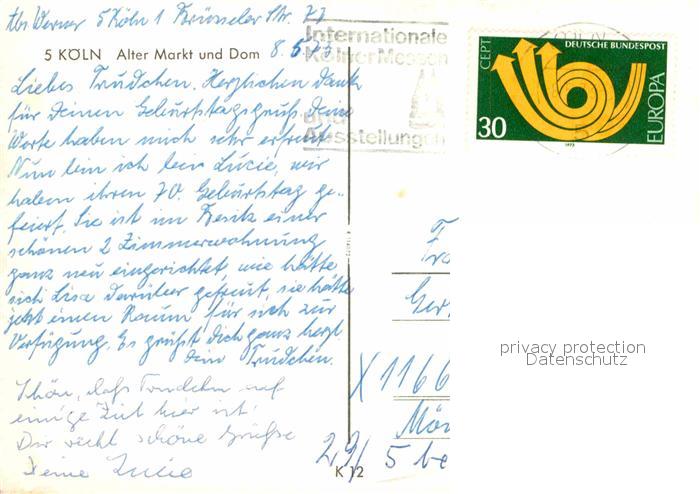 bei Werner 5 Köln 1 Brüsseler Str. 77
5 KÖLN Alter Markt und Dom 8.5.73
Liebes Trudchen. Herzlichen Dank
für Deinen Geburtstagsgruß, Deine
Worte haben mich sehr erfreut.
Nun bin ich bei Lucie, wir
haben ihren 70. Geburtstag ge-
feiert. Sie ist im Besitz einer
schönen 2 Zimmerwohnung
ganz neu eingerichtet, wie hätte
sich Lisa darüber gefreut, sie hätte
jetzt einen Raum für sich zur
Verfügung. Es grüßt Dich ganz herzl.
Dein Trudchen.
Schön, daß Trudchen auf
einige Zeit hier ist!
Dir recht schöne Grüße
Deine Lucie
Internationale
Kölner Messen
und
Ausstellungen
CEPT
DEUTSCHE BUNDESPOST
EUROPA
30
1973
Ger
X 1166
Mör
29/ 5 be
K 12
privacy protection
Datenschutz